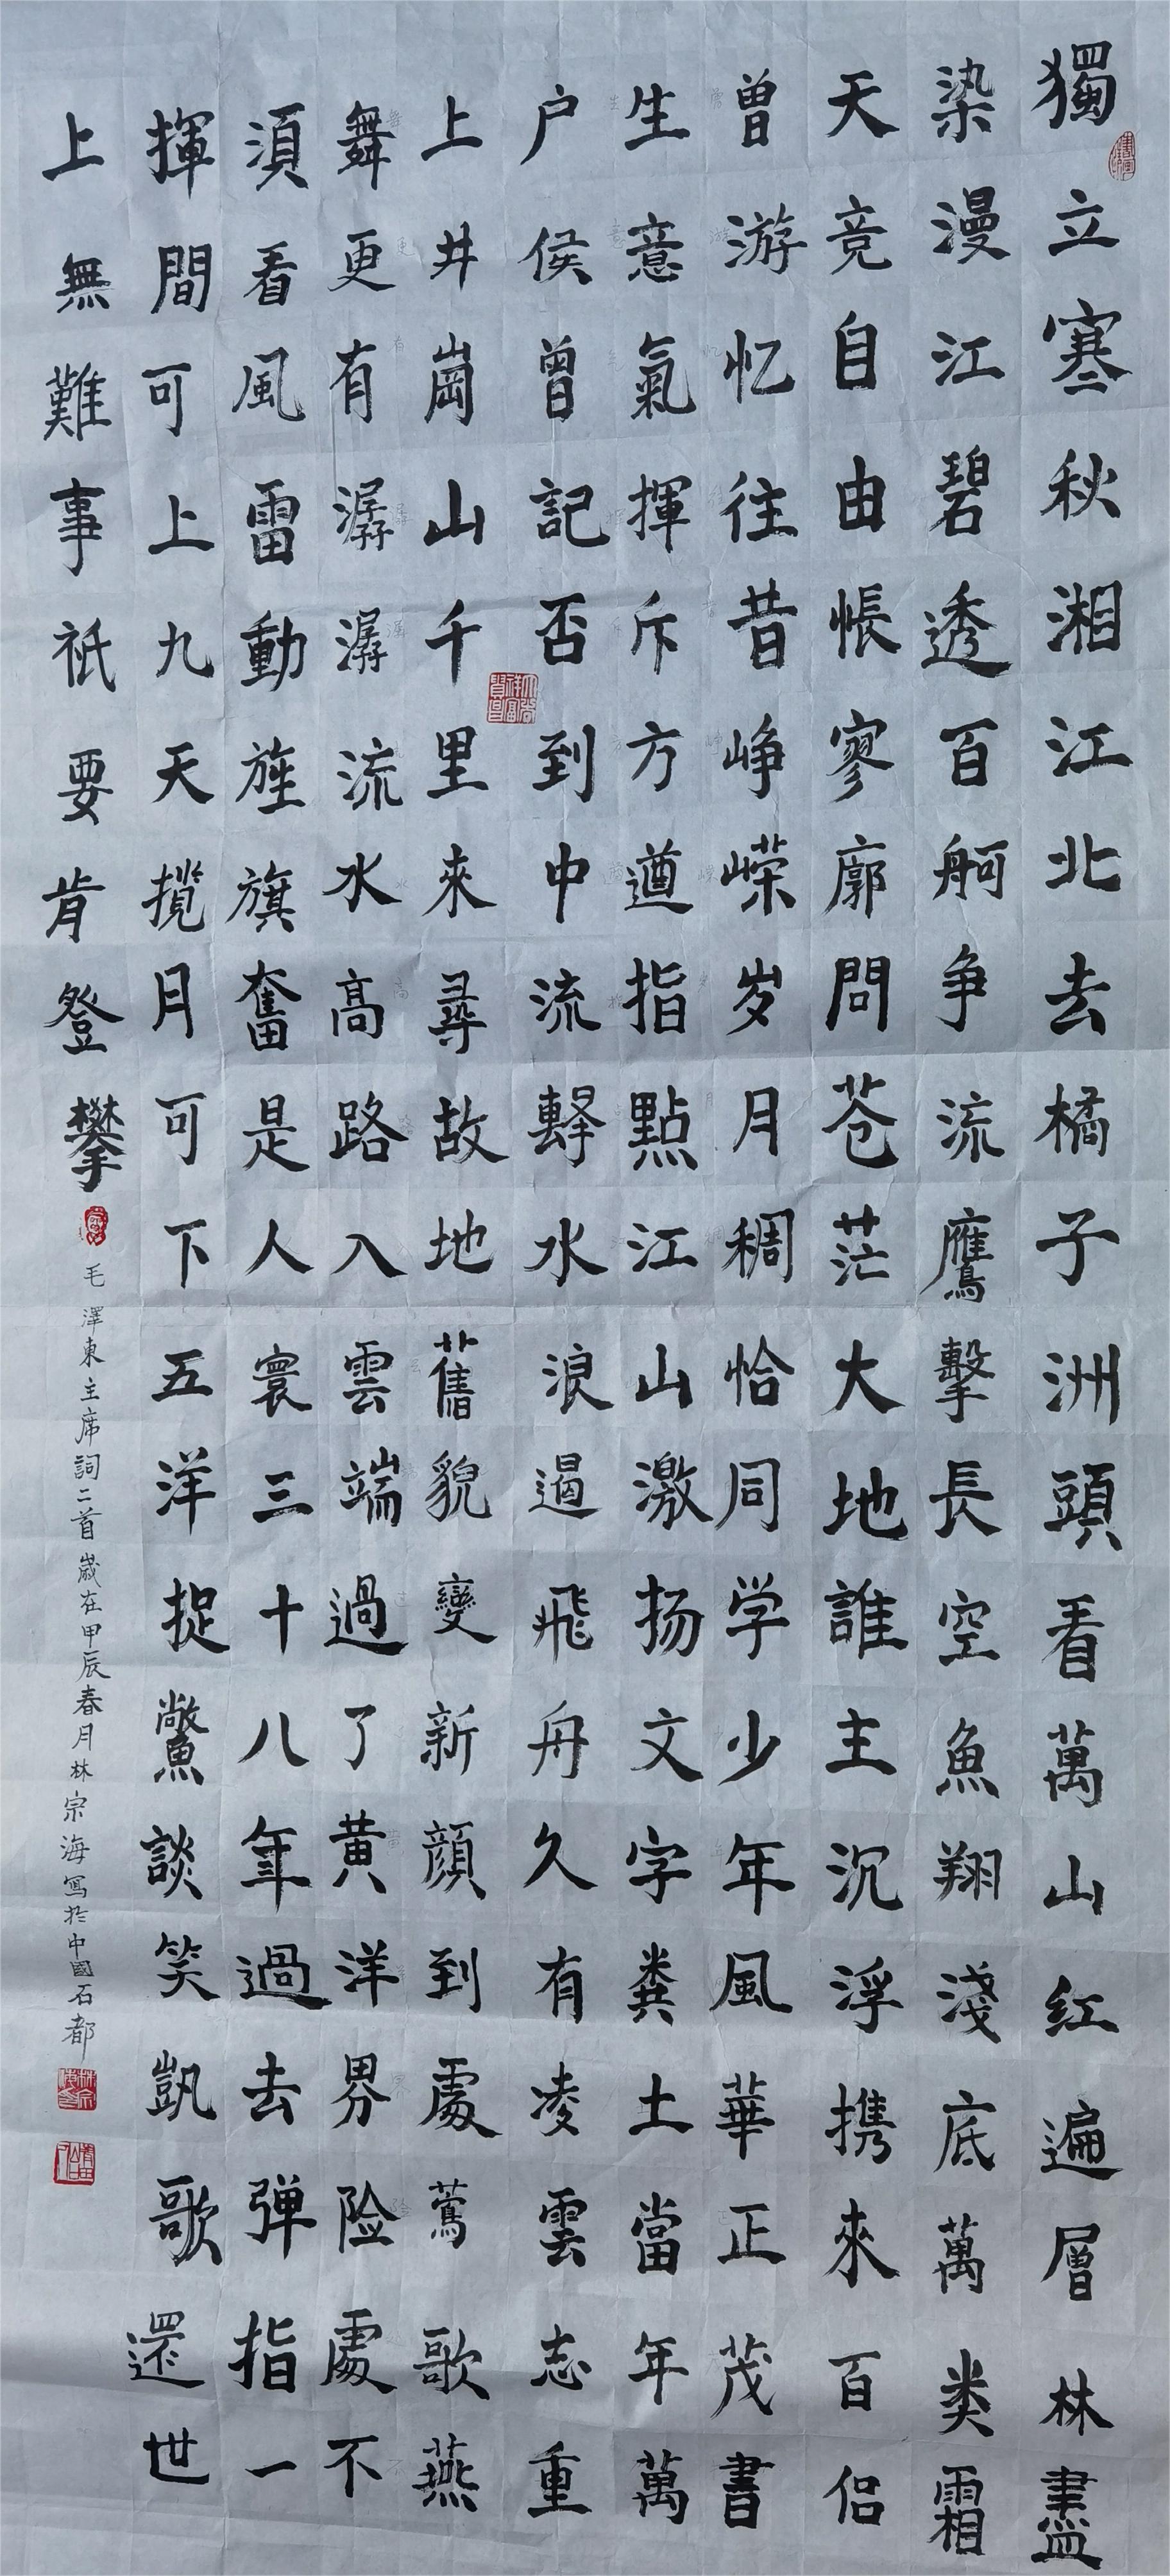 獨立寒秋湘江北去橘子洲頭看萬山红遍層林盡
染漫江碧透百舸争流鷹擊長空魚翔淺底萬类霜
天竞自由悵寥廓問苍茫大地誰主沉浮携來百侣
曾游忆往昔峥嵘岁月稠恰同学少年風華正茂書
生意氣揮斥方遒指點江山激扬文字粪土當年萬
户侯曾記否到中流擊水浪遏飛舟久有凌雲志重
上井崗山千里來尋故地舊貌變新顔到處鶯歌燕
舞更有潺潺流水高路入雲端過了黄洋界险處不
須看風雷動旌旗奮是人寰三十八年過去弹指一
揮間可上九天攬月可下五洋捉鱉談笑凱歌還世
上無難事祇要肯登攀
毛澤東主席詞二首歲在甲辰春月林宗海寫於中國石都